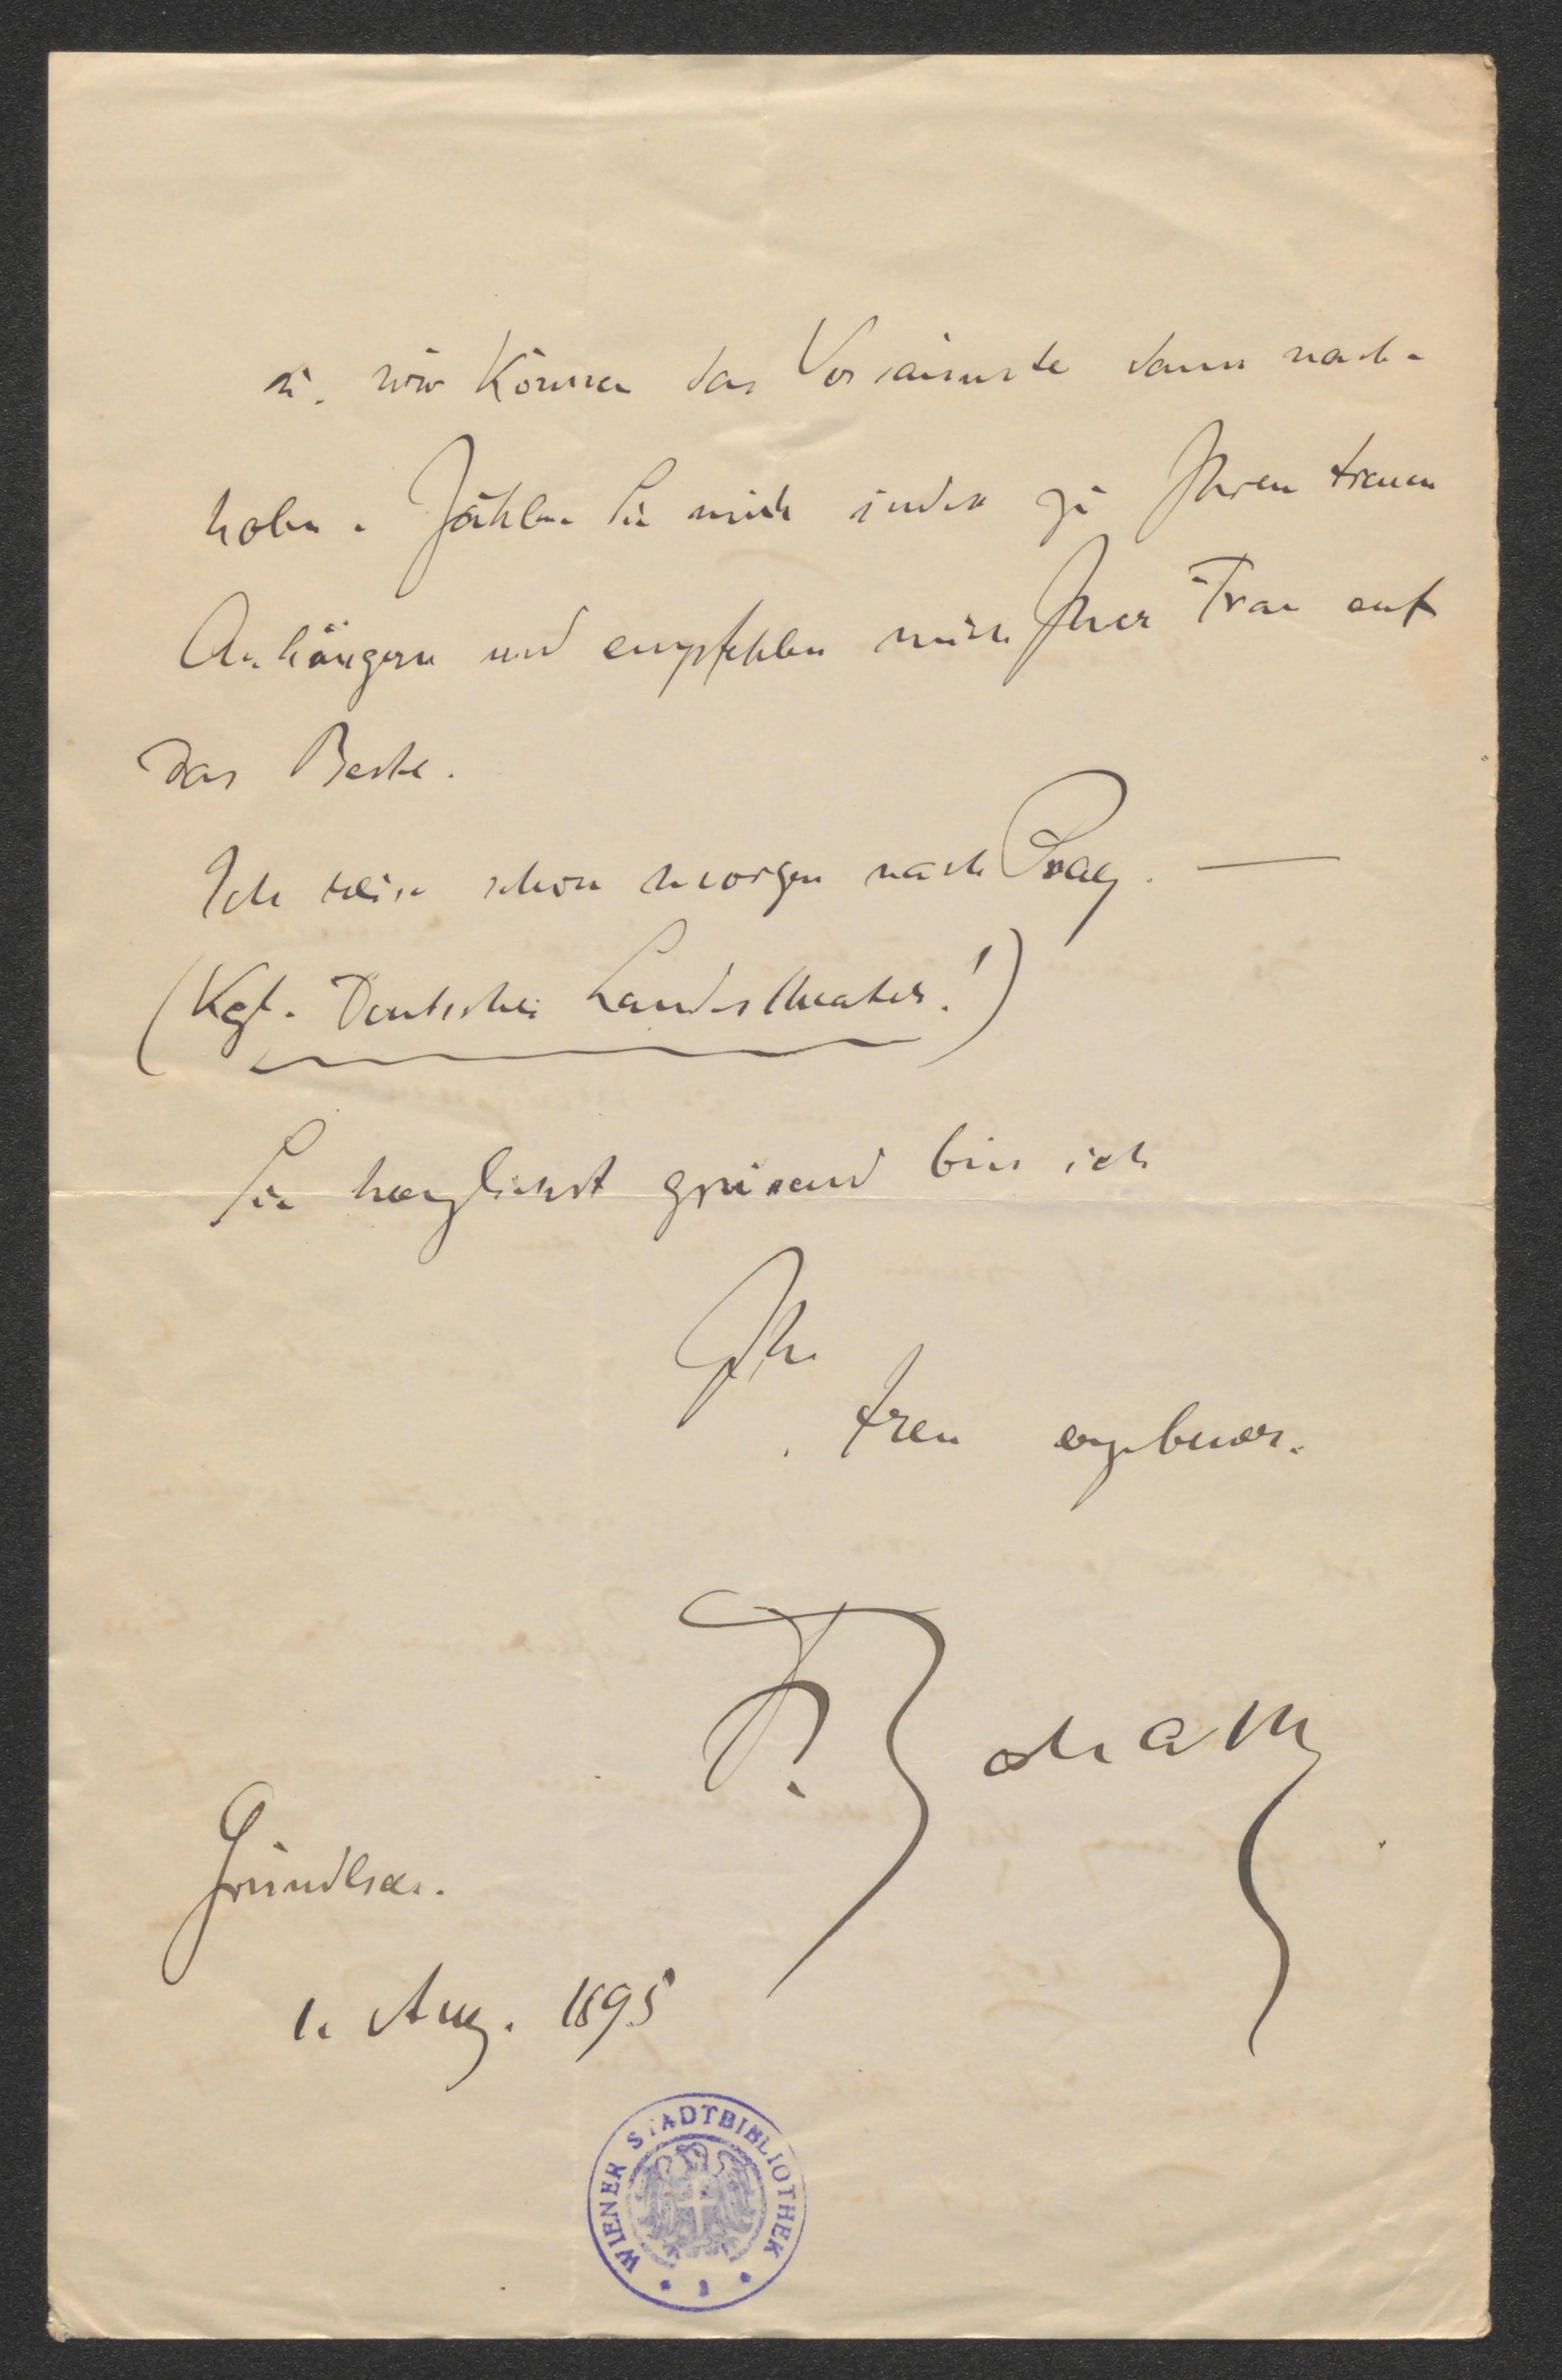 u. wir können das Versäumte dann nach-
holen. Zählen Sie mich indeß zu Ihren treuen
Anhängern und empfehlen mich Ihrer Frau auf
das Beste.
Ich reise schon morgen nach Prag. —
(Kgl. Deutsches Landestheater!)
Sie herzlichst grüßend bin ich
Ihr
treu ergebener.
F. Schalk
Grundlsee.
1. Aug. 1895
WIENER STADTBIBLIOTHEK